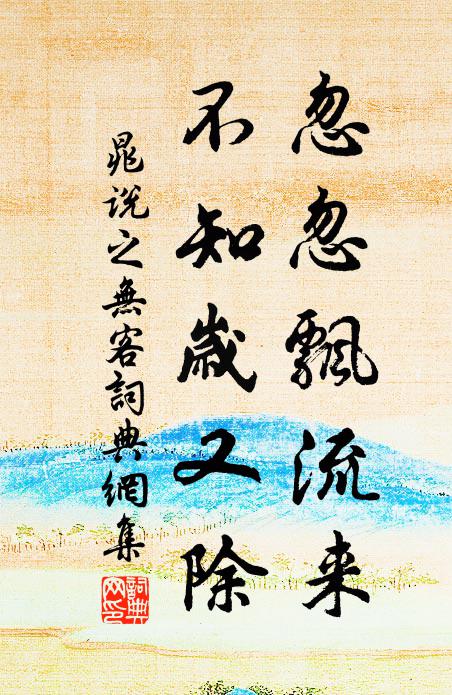 忽忽飄流来
不知歲又除
晁說之無客詞典網集
詞典